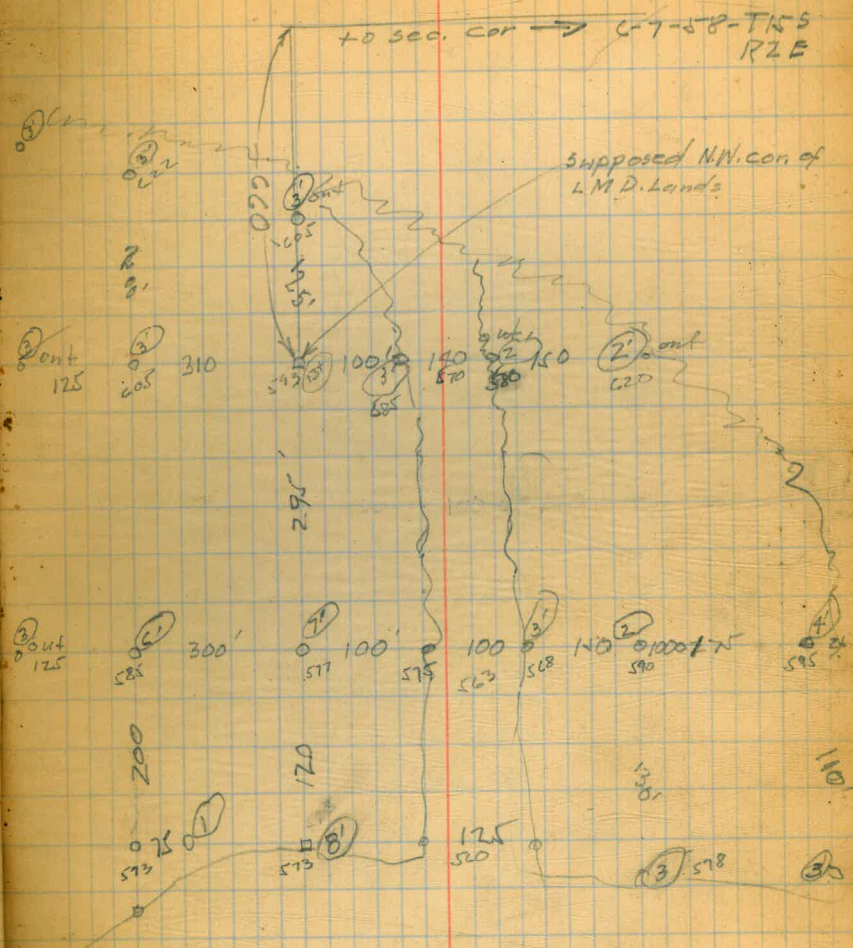 to sec. cor → 6-7-58-T15S
R2E
3'
3'
622
Supposed N.W. cor. of
L M D. Lands
660
3' out
605
3' out
125
3'
605
310
593
100'
3'
585
140
570
2'
580
150
2' out
620
295'
3' out
125
6'
585
300'
7'
577
100'
575
100
563
3'
568
140
2'
590
1000
4'
595
200
120
110'
593
75
1'
573
8'
125
520
3
598
3